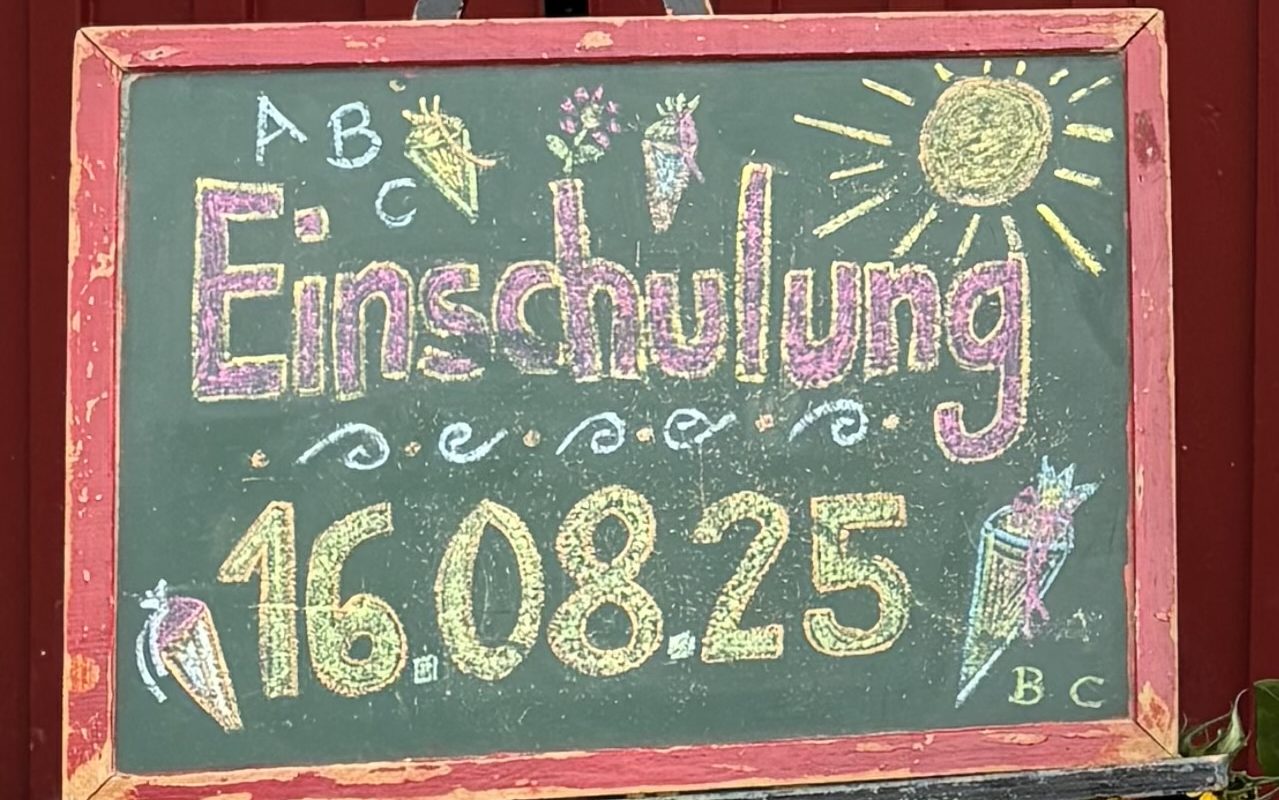 A B
C
Einschulung
16.08.25
B C